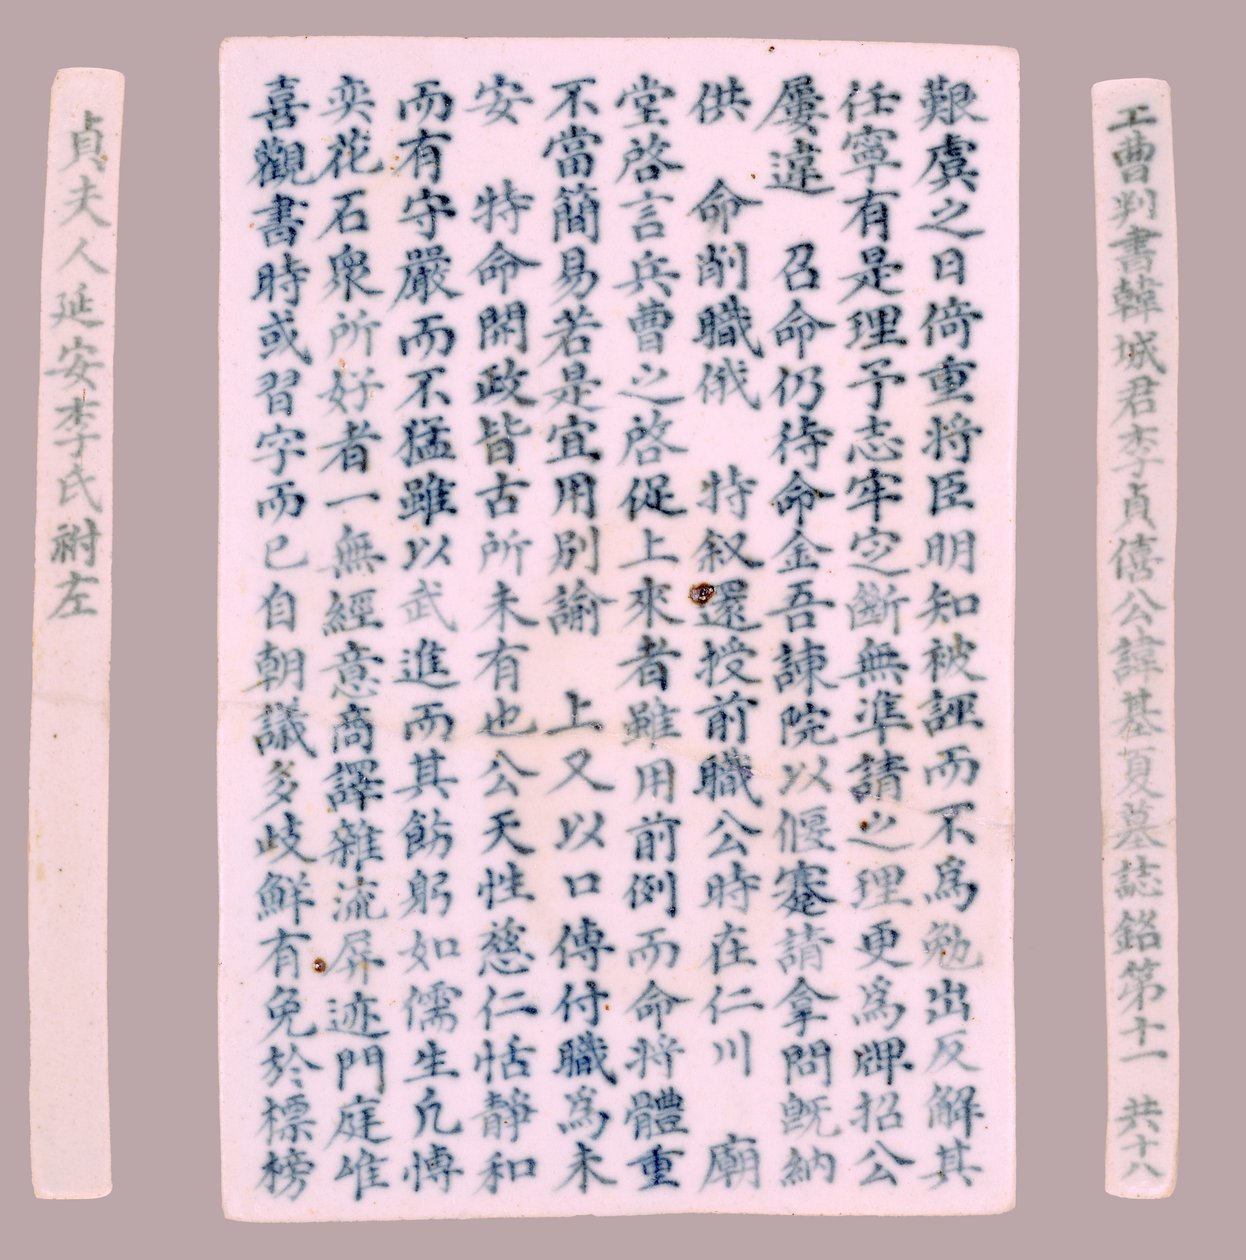 工曹判書韓城君李貞僖公諱基夏墓誌銘第十一 共十八
艱虞之日倚重將臣明知被誣而不爲勉出反解其
任寧有是理予志牢定斷無準請之理更爲牌招公
屢違 召命仍待命金吾諫院以偃蹇請拿問旣納
供 命削職俄 特叙還授前職公時在仁川 廟
堂啓言兵曹之啓促上來者雖用前例而命將體重
不當簡易若是宜用別諭 上又以口傳付職爲未
安 特命開政皆古所未有也公天性慈仁恬靜和
而有守嚴而不猛雖以武進而其飭躬如儒生凡博
奕花石衆所好者一無經意商譯雜流屛迹門庭唯
喜觀書時或習字而已自朝議多歧鮮有免於標榜
貞夫人延安李氏祔左